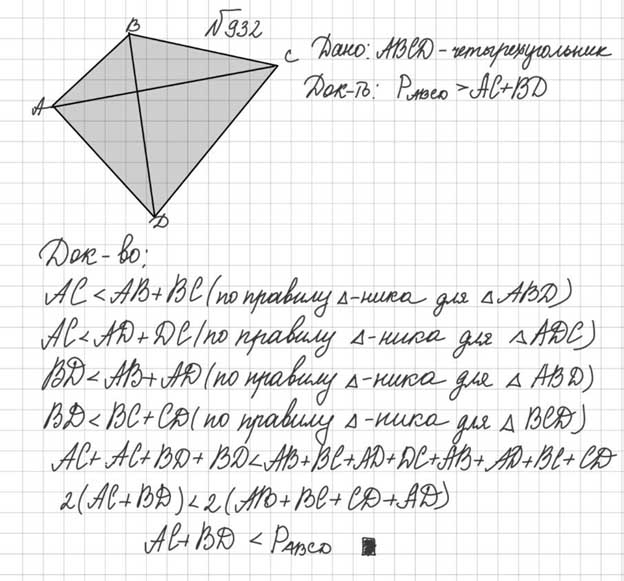 B
№932
C
A
D
Дано: ABCD - четырехугольник
Док-ть: P_ABCD > AC+BD
Док-во:
AC < AB + BC (по правилу Δ-ника для Δ ABD)
AC < AD + DC (по правилу Δ-ника для Δ ADC)
BD < AB + AD (по правилу Δ-ника для Δ ABD)
BD < BC + CD (по правилу Δ-ника для Δ BCD)
AC + AC + BD + BD < AB + BC + AD + DC + AB + AD + BC + CD
2(AC + BD) < 2(AB + BC + CD + AD)
AC + BD < P_ABCD